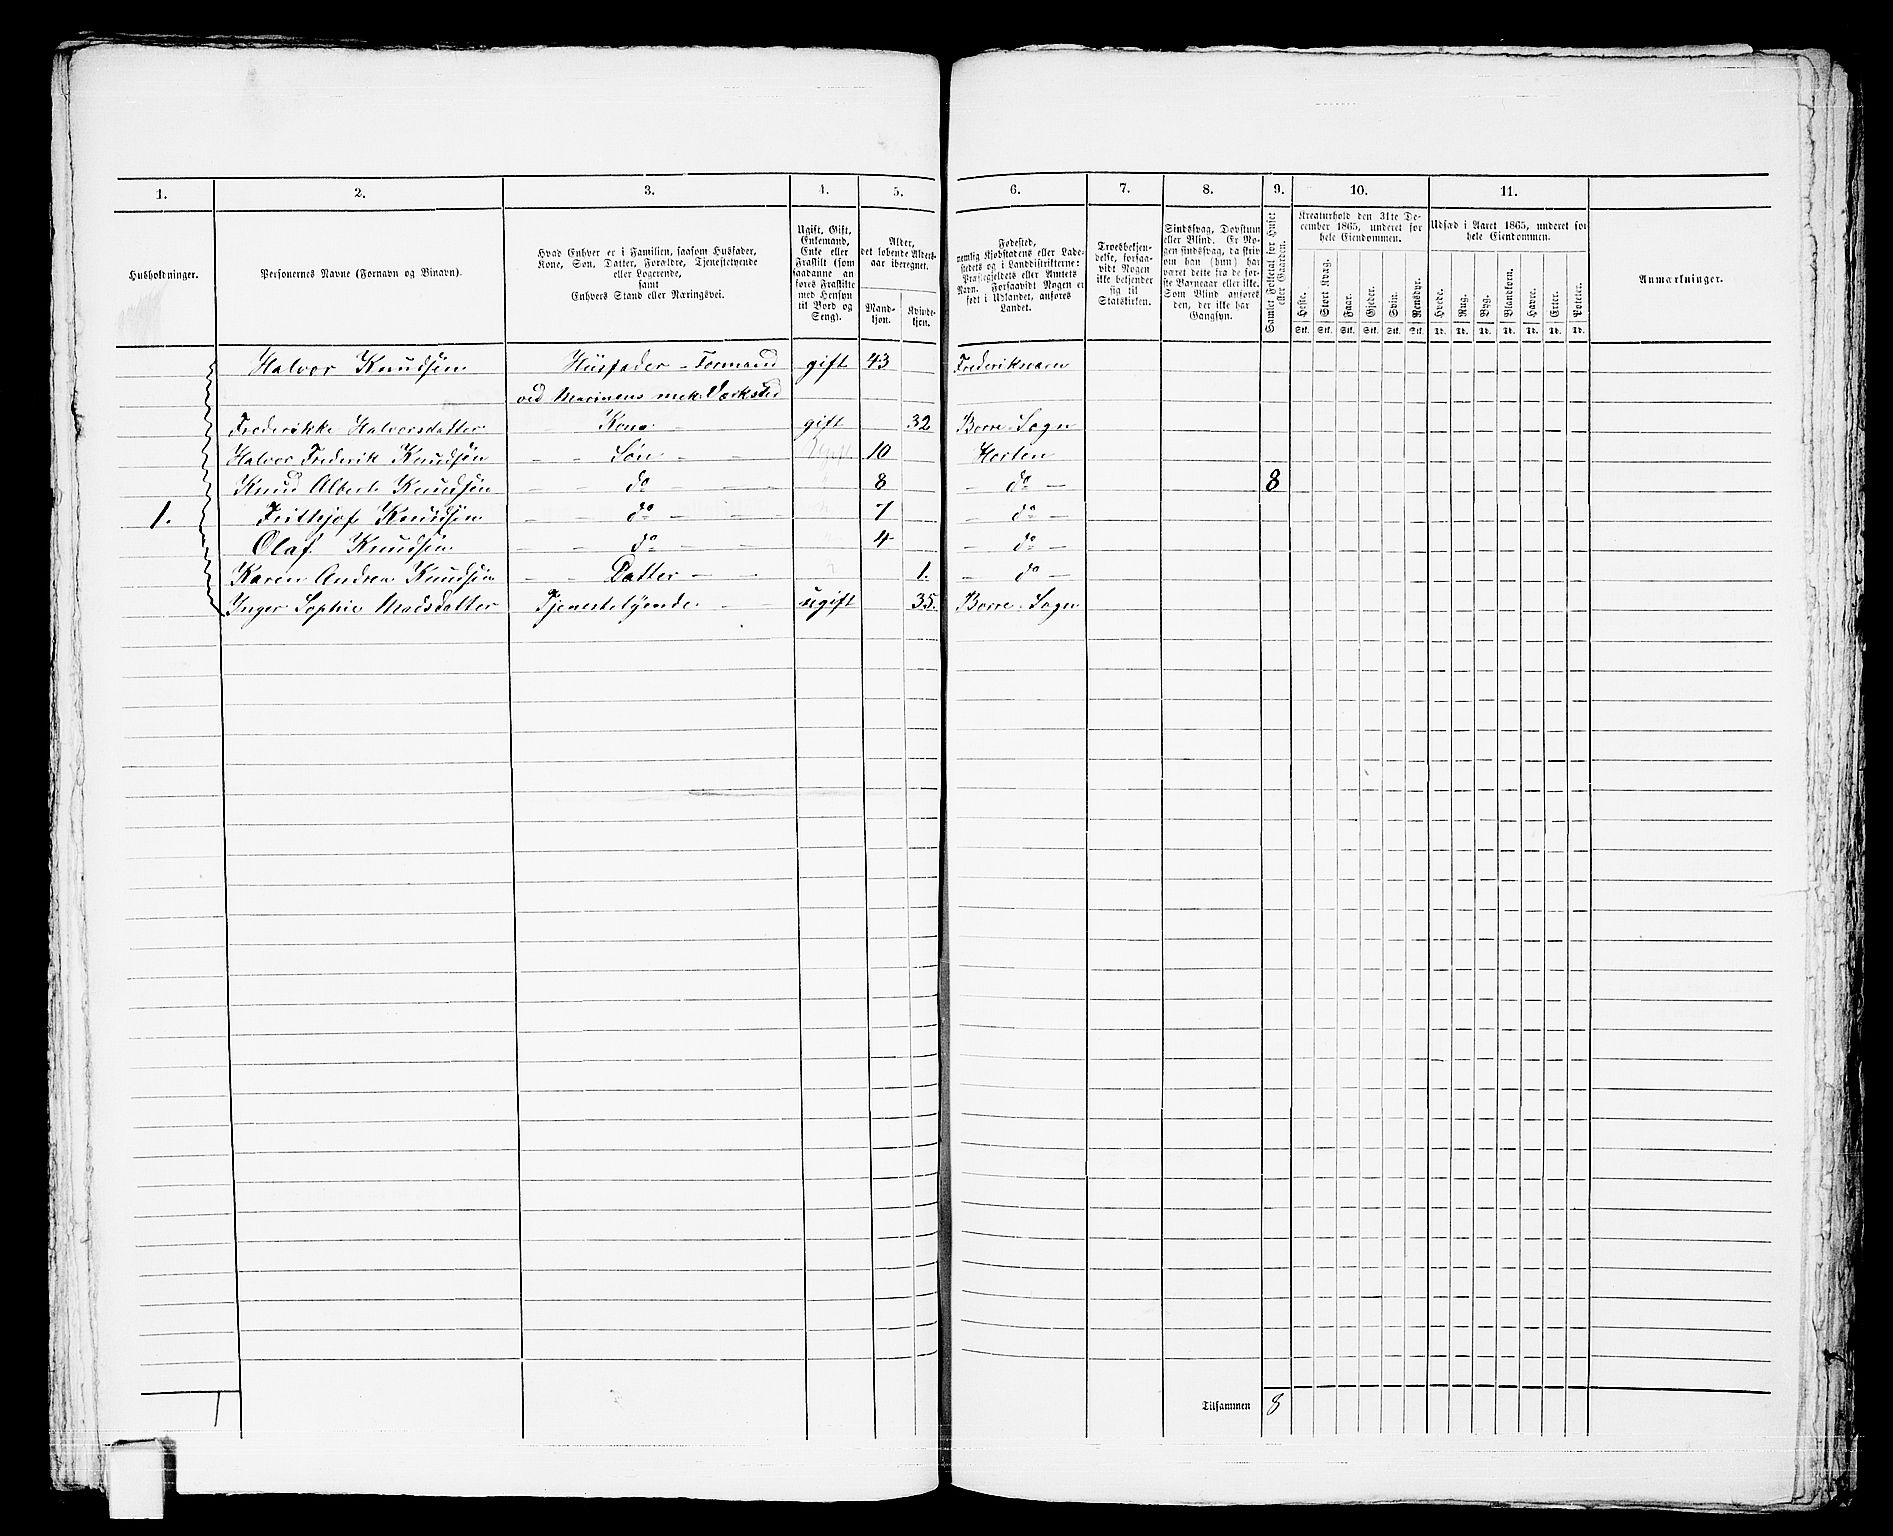 1. 2. 3. 4. 5. 6. 7. 8. 9. 10. 11.
Husholdninger.
Personernes Navne (Fornavn og Binavn).
Hvad Enhver er i Familien, saasom Husfader,
Kone, Søn, Datter, Forældre, Tjenestetyende
eller Logerende,
samt
Enhvers Stand eller Næringsvei.
Ugift, Gift,
Enkemand,
Enke eller
Fraskilt (som
saadanne an-
føres Fraskilte
med Hensyn
til Bord og
Seng).
Alder,
det løbende Alders-
aar iberegnet.
Mand-
kjøn.
Kvinde-
kjøn.
Fødested,
nemlig Kjøbstadens eller Lade-
stedets og i Landdistrikterne:
Præstegjeldets eller Amtets
Navn. Forsaavidt Nogen er
født i Udlandet, anføres
Landet.
Troesbekjen-
delse, forsaa-
vidt Nogen
ikke bekjender
sig til
Statskirken.
Sindssvag, Døvstum
eller Blind. Er No-
gen sindssvag, da skriv
om han (hun) har
været dette fra de før-
ste Barneaar eller ikke.
Som Blind anføres
den, der ikke har
Gangsyn.
Samlet Folketal for Huset
eller Gaarden.
Kreaturhold den 31te De-
cember 1865, underet for
hele Eiendommen.
Heste. Stort Kvæg. Faar. Gjeder. Svin. Rensdyr.
Stk. Stk. Stk. Stk. Stk. Stk.
Udsæd i Aaret 1865, underet for
hele Eiendommen.
Hvede. Rug. Byg. Blandkorn. Havre. Erter. Poteter.
Td. Td. Td. Td. Td. Td. Td.
Anmærkninger.
Halvor Knudsen Husfader - Formand gift 43 Frederiksværn
ved Marinens mek. Værksted
Frederikke Halvorsdatter Kone gift 32 Borre Sogn
Halvor Frederik Knudsøn Søn 10 Horten
Knud Albert Knudsøn do 8 do 8
1. Frithjof Knudsøn do 7 do
Olaf Knudsøn do 4 do
Karen Andrea Knudsøn Datter 1. do
Inger Sophie Madsdatter Tjenestetyende ugift 35. Borre Sogn
1 Tilsammen 8